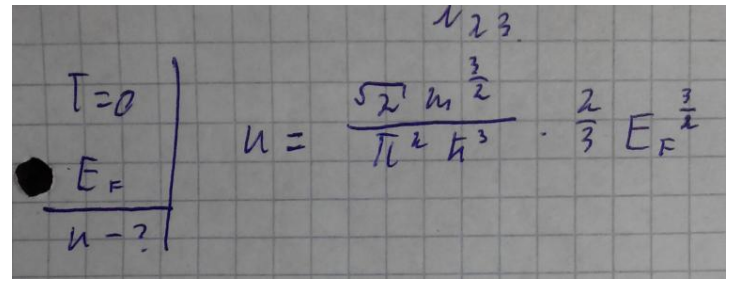 N 23.
T=0
E_F
n - ?
n = \frac{\sqrt{2} m^{\frac{3}{2}}}{π^2 ħ^3} · \frac{2}{3} E_F^{\frac{3}{2}}